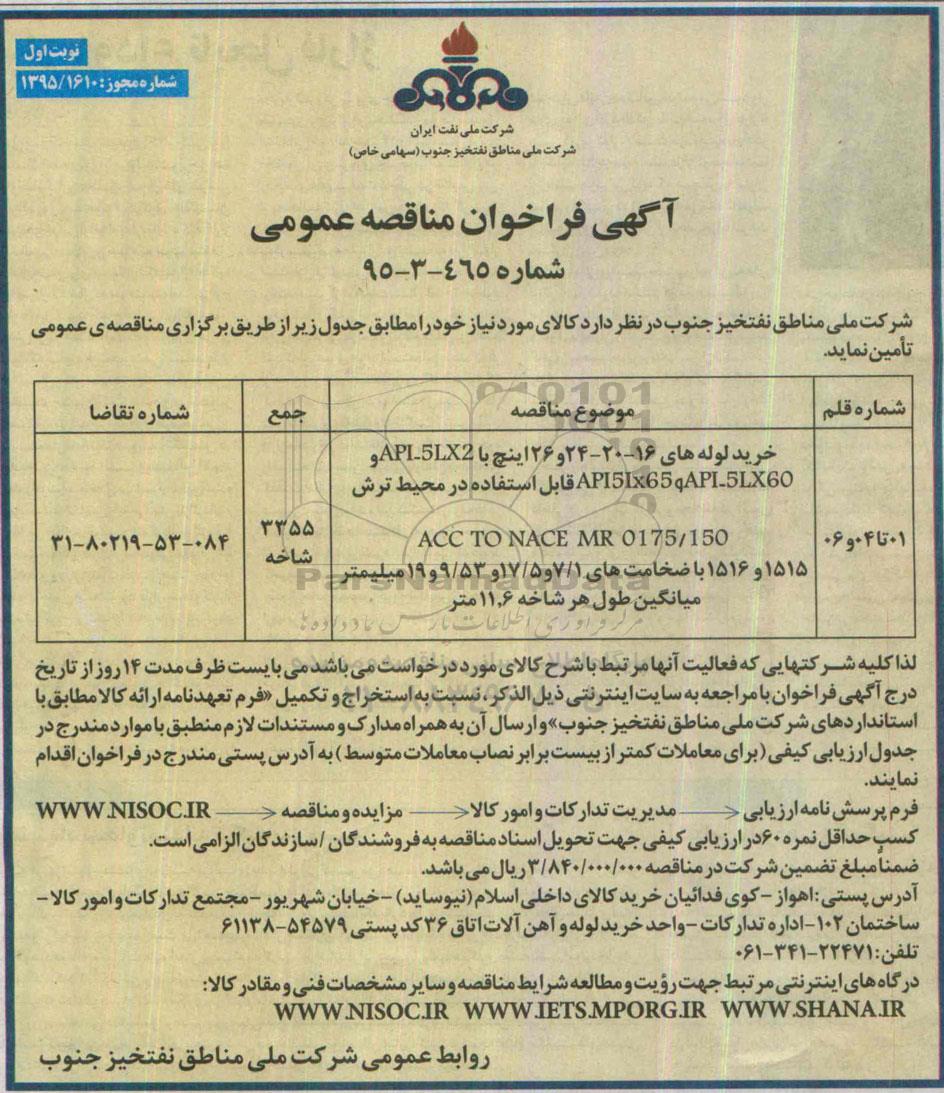 نوبت اول
شماره مجوز: ۱۳۹۵/۱۶۱۰
شرکت ملی نفت ایران
شرکت ملی مناطق نفتخیز جنوب (سهامی خاص)
آگهی فراخوان مناقصه عمومی
شماره ۴۶۵-۳-۹۵
شرکت ملی مناطق نفتخیز جنوب در نظر دارد کالای مورد نیاز خود را مطابق جدول زیر از طریق برگزاری مناقصه‌ی عمومی
تأمین نماید.
شماره قلم موضوع مناقصه جمع شماره تقاضا
خرید لوله های ۱۶-۲۰-۲۴و ۲۶ اینچ با API-5LX2و
API-5LX60و API5Ix65 قابل استفاده در محیط ترش
ACC TO NACE MR 0175/150
۱۵۱۵ و ۱۵۱۶ با ضخامت های ۷/۱و۱۷/۵و ۹/۵۳ و ۱۹ میلیمتر
میانگین طول هر شاخه ۱۱,۶ متر
۰۱تا۰۴و۰۶
۳۳۵۵
شاخه
۳۱-۸۰۲۱۹-۵۳-۰۸۴
ParsNamadData
لذا کلیه شرکتهایی که فعالیت آنها مرتبط با شرح کالای مورد درخواست می باشد می بایست ظرف مدت ۱۴ روز از تاریخ
درج آگهی فراخوان با مراجعه به سایت اینترنتی ذیل الذکر، نسبت به استخراج و تکمیل «فرم تعهدنامه ارائه کالا مطابق با
استانداردهای شرکت ملی مناطق نفتخیز جنوب» و ارسال آن به همراه مدارک و مستندات لازم منطبق با موارد مندرج در
جدول ارزیابی کیفی (برای معاملات کمتر از بیست برابر نصاب معاملات متوسط) به آدرس پستی مندرج در فراخوان اقدام
نمایند.
فرم پرسش نامه ارزیابی ← مدیریت تدارکات و امور کالا ← مزایده و مناقصه ← WWW.NISOC.IR
کسب حداقل نمره ۶۰ در ارزیابی کیفی جهت تحویل اسناد مناقصه به فروشندگان / سازندگان الزامی است.
ضمنا مبلغ تضمین شرکت در مناقصه ۳/۸۴۰/۰۰۰/۰۰۰ ریال می باشد.
آدرس پستی: اهواز - کوی فدائیان خرید کالای داخلی اسلام (نیوساید) - خیابان شهریور - مجتمع تدارکات و امور کالا -
ساختمان ۱۰۲ - اداره تدارکات - واحد خرید لوله و آهن آلات اتاق ۳۶ کد پستی ۵۴۵۷۹-۶۱۱۳۸
تلفن: ۲۲۴۷۱-۳۴۱-۰۶۱
درگاه های اینترنتی مرتبط جهت رؤیت و مطالعه شرایط مناقصه و سایر مشخصات فنی و مقادر کالا:
WWW.NISOC.IR WWW.IETS.MPORG.IR WWW.SHANA.IR
روابط عمومی شرکت ملی مناطق نفتخیز جنوب